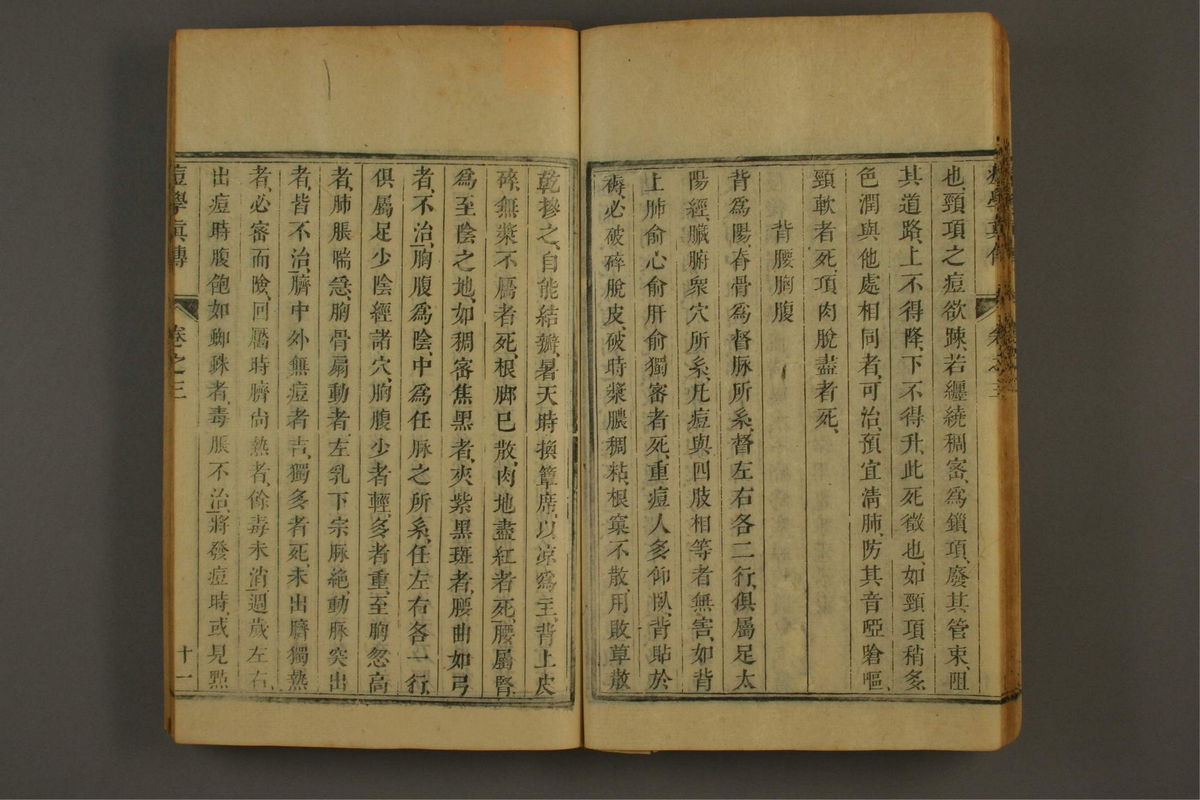 也頸項之痘欲踈若纒繞稠密爲鎖項廢其管束阻
其道路上不得降下不得升此死徵也如頸項稍多
色潤與他處相同者可治預宜清肺防其音啞嗆嘔
頸軟者死項肉脫盡者死
背腰胸腹
背爲陽脊骨爲督脉所系督左右各二行俱屬足太
陽經臟腑衆穴所系凡痘與四肢相等者無害如背
上肺俞心俞肝俞獨密者死重痘人多仰臥背貼於
褥必破碎脫皮破時漿膿稠粘根窠不散用敗草散
乾摻之自能結瓣暑天時換簟席以凉爲主背上皮
碎無漿不屬者死根脚已散肉地盡紅者死腰屬腎
爲至陰之地如稠密焦黑者夾紫黑斑者腰曲如弓
者不治胸腹爲陰中爲任脉之所系任左右各一行
俱屬足少陰經諸穴胸腹少者輕多者重至胸忽高
者肺脹喘急胸骨扇動者左乳下宗脉絕動脉突出
者皆不治臍中外無痘者吉獨多者死未出臍獨熱
者必密而險回靨時臍尚熱者餘毒未消週歲左右
出痘時腹飽如蜘蛛者毒脹不治將發痘時或見㸃
痘學眞傳
卷之三
十一